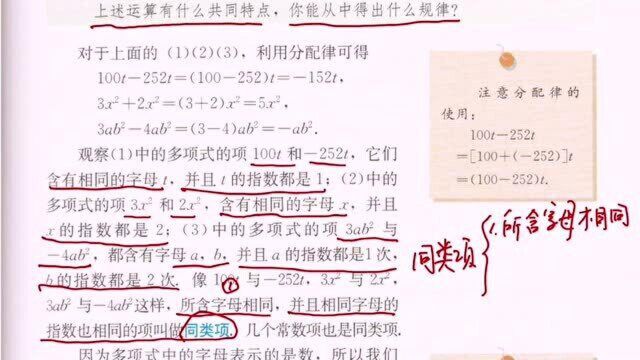 上述运算有什么共同特点，你能从中得出什么规律？
对于上面的（1）（2）（3），利用分配律可得
100t－252t＝(100－252)t＝－152t,
3x²＋2x²＝(3＋2)x²＝5x²,
3ab²－4ab²＝(3－4)ab²＝－ab².
观察(1)中的多项式的项100t和－252t，它们
含有相同的字母t，并且t的指数都是1；(2)中的
多项式的项3x²和2x²，含有相同的字母x，并且
x的指数都是2；(3)中的多项式的项3ab²与
－4ab²，都含有字母a，b，并且a的指数都是1次，
b的指数都是2次．像100t与－252t，3x²与2x²，
3ab²与－4ab²这样，所含字母相同，并且相同字母的
指数也相同的项叫做同类项．几个常数项也是同类项．
因为多项式中的字母表示的是数，所以我们
注意分配律的
使用：
100t－252t
＝[100＋(－252)]t
＝(100－252)t.
同类项
1.所含字母相同
①